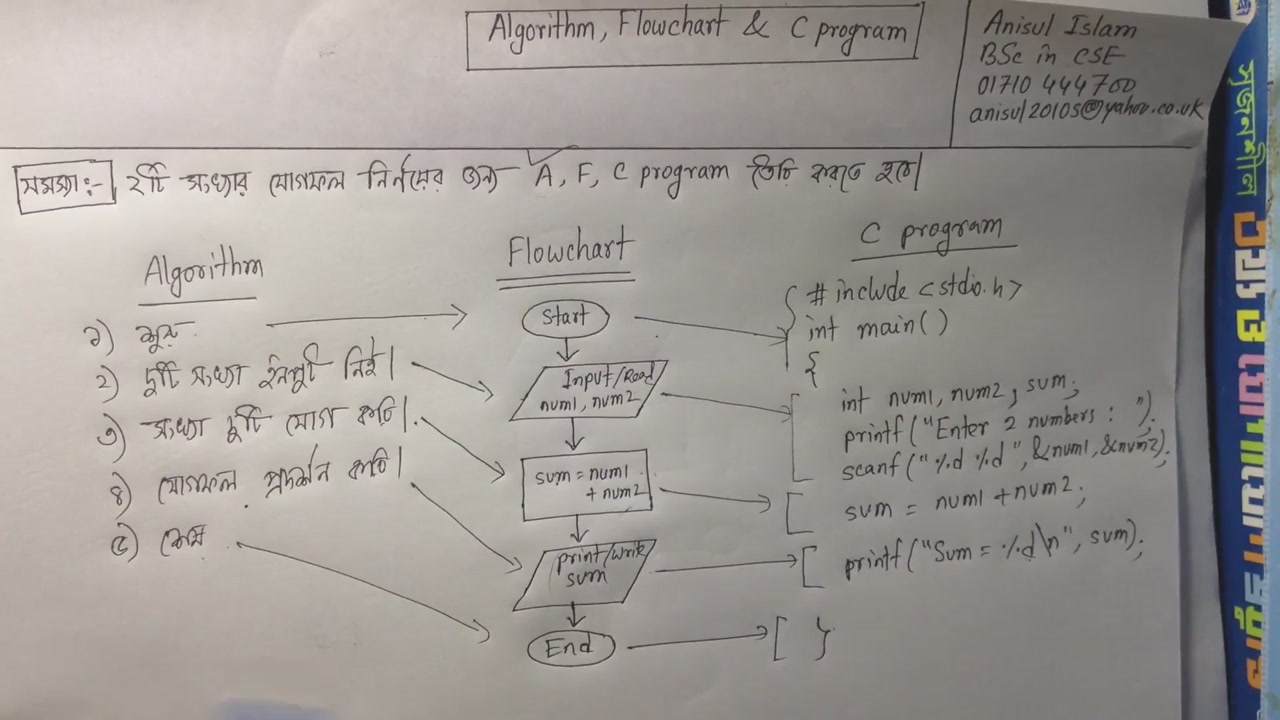 Algorithm, Flowchart & C program
Anisul Islam
BSc in CSE
01710 444700
anisul20105@yahoo.co.uk
সমস্যাঃ- ২টি সংখ্যার যোগফল নির্নয়ের জন্য A, F, C program তৈরি করতে হবে।
Algorithm
১) শুরু
২) দুটি সংখ্যা ইনপুট নিই।
৩) সংখ্যা দুটি যোগ করি।
৪) যোগফল প্রদর্শন করি।
৫) শেষ
Flowchart
Start
Input/Read
num1, num2
sum = num1
+ num2
print/write
sum
End
C program
# include <stdio.h>
int main()
{
int num1, num2, sum;
printf("Enter 2 numbers : ");
scanf("%d %d", &num1, &num2);
sum = num1 + num2;
printf("Sum = %d\n", sum);
}
সৃজনশীল